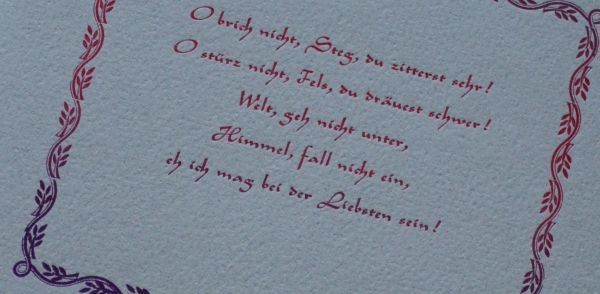 O brich nicht, Steg, du zitterst sehr!
O stürz nicht, Fels, du dräuest schwer!
Welt, geh nicht unter,
Himmel, fall nicht ein,
eh ich mag bei der Liebsten sein!